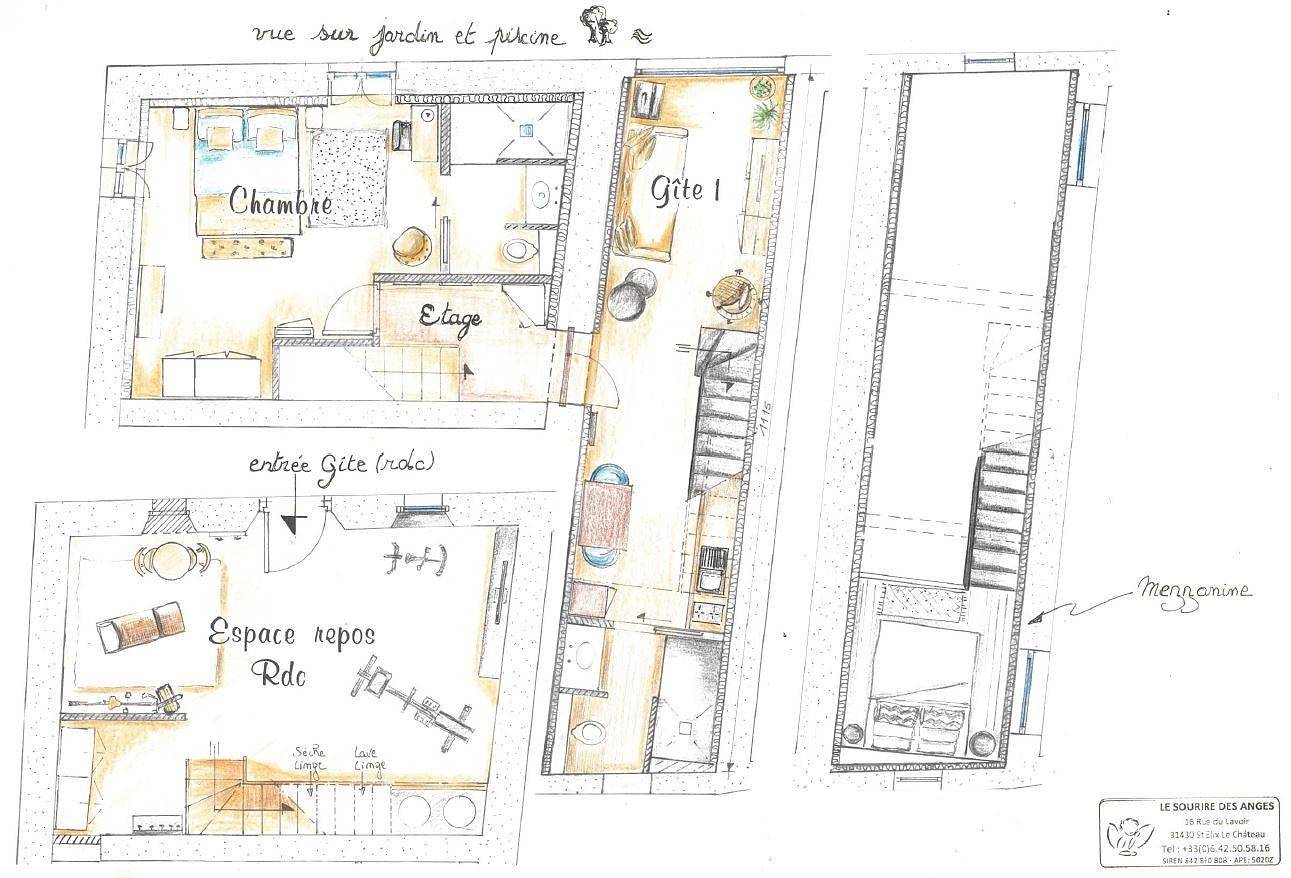 vue sur jardin et piscine
Chambre
Gîte 1
Etage
1115
entrée Gîte (rdc)
Espace repos
Rdc
Sèche
Linge
Lave
Linge
Mezzanine
LE SOURIRE DES ANGES
16 Rue du Lavoir
31430 St Elix Le Château
Tel : +33(0)6.42.50.58.16
SIREN 842 890 808 - APE: 5020Z